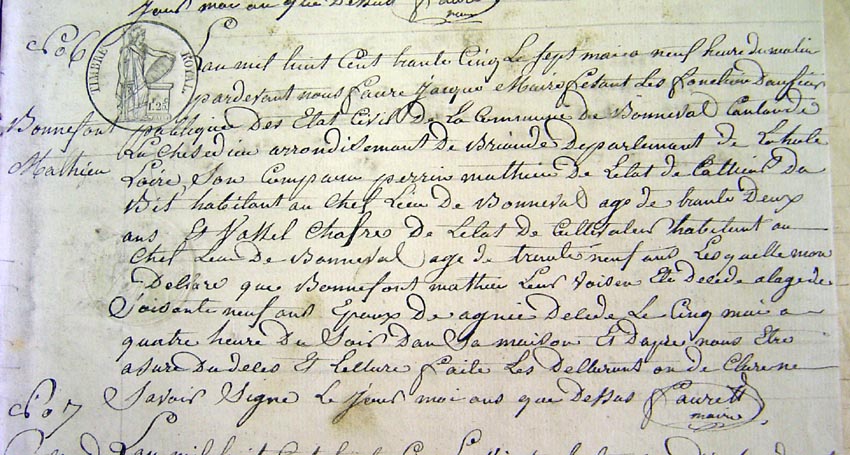 Jour moi an que Dessus Faure
maire
No 6
TIMBRE ROYAL
1.25
Bonnefont
Mathieu
L'an mil huit Cent trante Cinq Le sept mai a neuf heure du matin
pardevant nous Faure Jacque Maire fesant Les fonction d'auficier
publique Des Etat Civil De La Commune De Bonneval Canton de
La Chise dieu arrondisement De Brioude Departement De La haute
Loire, Son Comparu perrin mathieu De Letat De
habitant au Chef Lieu De Bonneval age de trante Deux
ans Et Vassel Chafre De Letat De Cultivateur habitant au
Chef Lieu De Bonneval age de trante neuf ans Lesquelle mon
Declare que Bonnefont mathieu Leur Voisin Ete decede a lage de
Soisante neuf ans Epoux De agnes decede Le Cinq mai a
quatre heure Du Soir Dans Sa maison Et Dapre nous Etre
asure Du deces Et Lecture faite Les Declarant on de Clare ne
Savoir Signe Le Jour moi ans que Dessus Faure
maire
No 7
L'an mil huit Cent